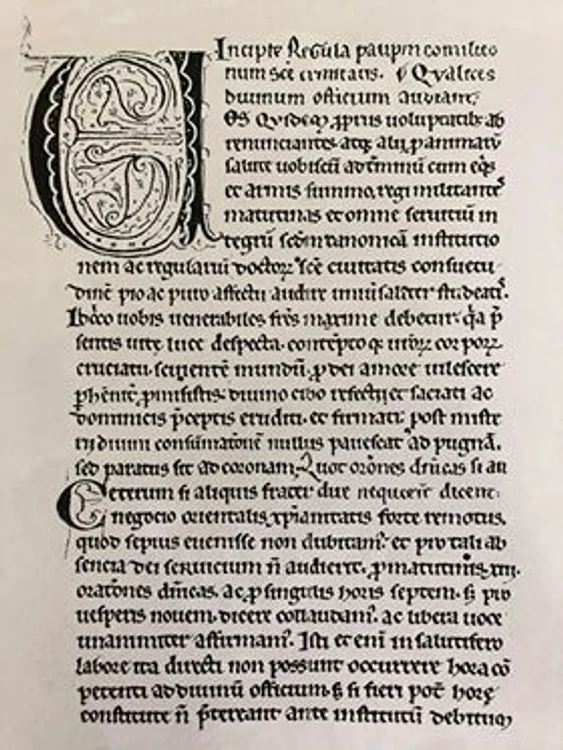 Incipit Regula paupm comilito
num sce trinitatis. Qualit
diuinum officium audiant.
OS Quidem ppriis voluptatib ab
renunciantes atq alii p animarū
salute uobiscū ad tminū cum eqis
et armis summo regi militantes
matutinas et omne seruitiū in
tegrū scdm canonicā institutio
nem ac regulariū doctorꝝ sce ciuitatis consuetu
dinē pio ac puro affectu audire uniuersaliter studeatis.
Idcco uobis uenerabiles frs maxime debetur qa p̄
sentis uite luce despecta contēpto q urorꝝ corporꝝ
cruciatu seuientē mundū p dei amore uilescere
phenitē pmisistis diuino cibo refecti et saciati ac
dominicis pceptis eruditi et firmati post miste
rii diuini consūmationē nullus pauescat ad pugnā
sed paratus sit ad coronam. Quot orones drūcas si au
Ceterum si aliquis frater due nequierit dicent.
negocio orientalis xpianitatis forte remotus,
quod sepius euenisse non dubitam. et pro tali ab
sencia dei seruicium ñ audierit. p matutinis xiii.
oratōnes dñicas. ac p singulis horis septem. s̄ pro
uesperis nouem. dicere collaudam. ac libera uoce
unanimiter affirmam. Isti et enī in salutifero
labore ita directi non possunt occurrere hora cō
petenti ad diuinū officium s̄ si fieri pot horę
constitute ñ ptereant ante institutū debitum